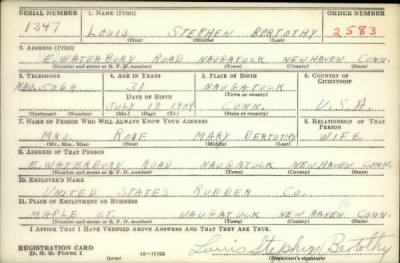 SERIAL NUMBER 1. NAME (Print) ORDER NUMBER
1347 LOUIS STEPHEN BERTOTHY 2583
(First) (Middle) (Last)
2. ADDRESS (Print)
E. WATERBURY ROAD NAUGATUCK NEW HAVEN CONN.
(Number and street or R. F. D. number) (Town) (County) (State)
3. TELEPHONE 4. AGE IN YEARS 5. PLACE OF BIRTH 6. COUNTRY OF CITIZENSHIP
NAU. 5064 31 NAUGATUCK
DATE OF BIRTH (Town or county)
JULY 19 1909 CONN. U.S.A.
(Exchange) (Number) (Mo.) (Day) (Yr.) (State or country)
7. NAME OF PERSON WHO WILL ALWAYS KNOW YOUR ADDRESS 8. RELATIONSHIP OF THAT PERSON
MRS. ROSE MARY BERTOTHY WIFE
(Mr., Mrs., Miss) (First) (Middle) (Last)
9. ADDRESS OF THAT PERSON
E. WATERBURY ROAD NAUGATUCK NEW HAVEN CONN.
(Number and street or R. F. D. number) (Town) (County) (State)
10. EMPLOYER'S NAME
UNITED STATES RUBBER CO.
11. PLACE OF EMPLOYMENT OR BUSINESS
MAPLE ST. NAUGATUCK NEW HAVEN CONN.
(Number and street or R. F. D. number) (Town) (County) (State)
I AFFIRM THAT I HAVE VERIFIED ABOVE ANSWERS AND THAT THEY ARE TRUE.
REGISTRATION CARD
D. S. S. Form 1 16—17105 Louis Stephen Bertothy
(over) (Registrant's signature)